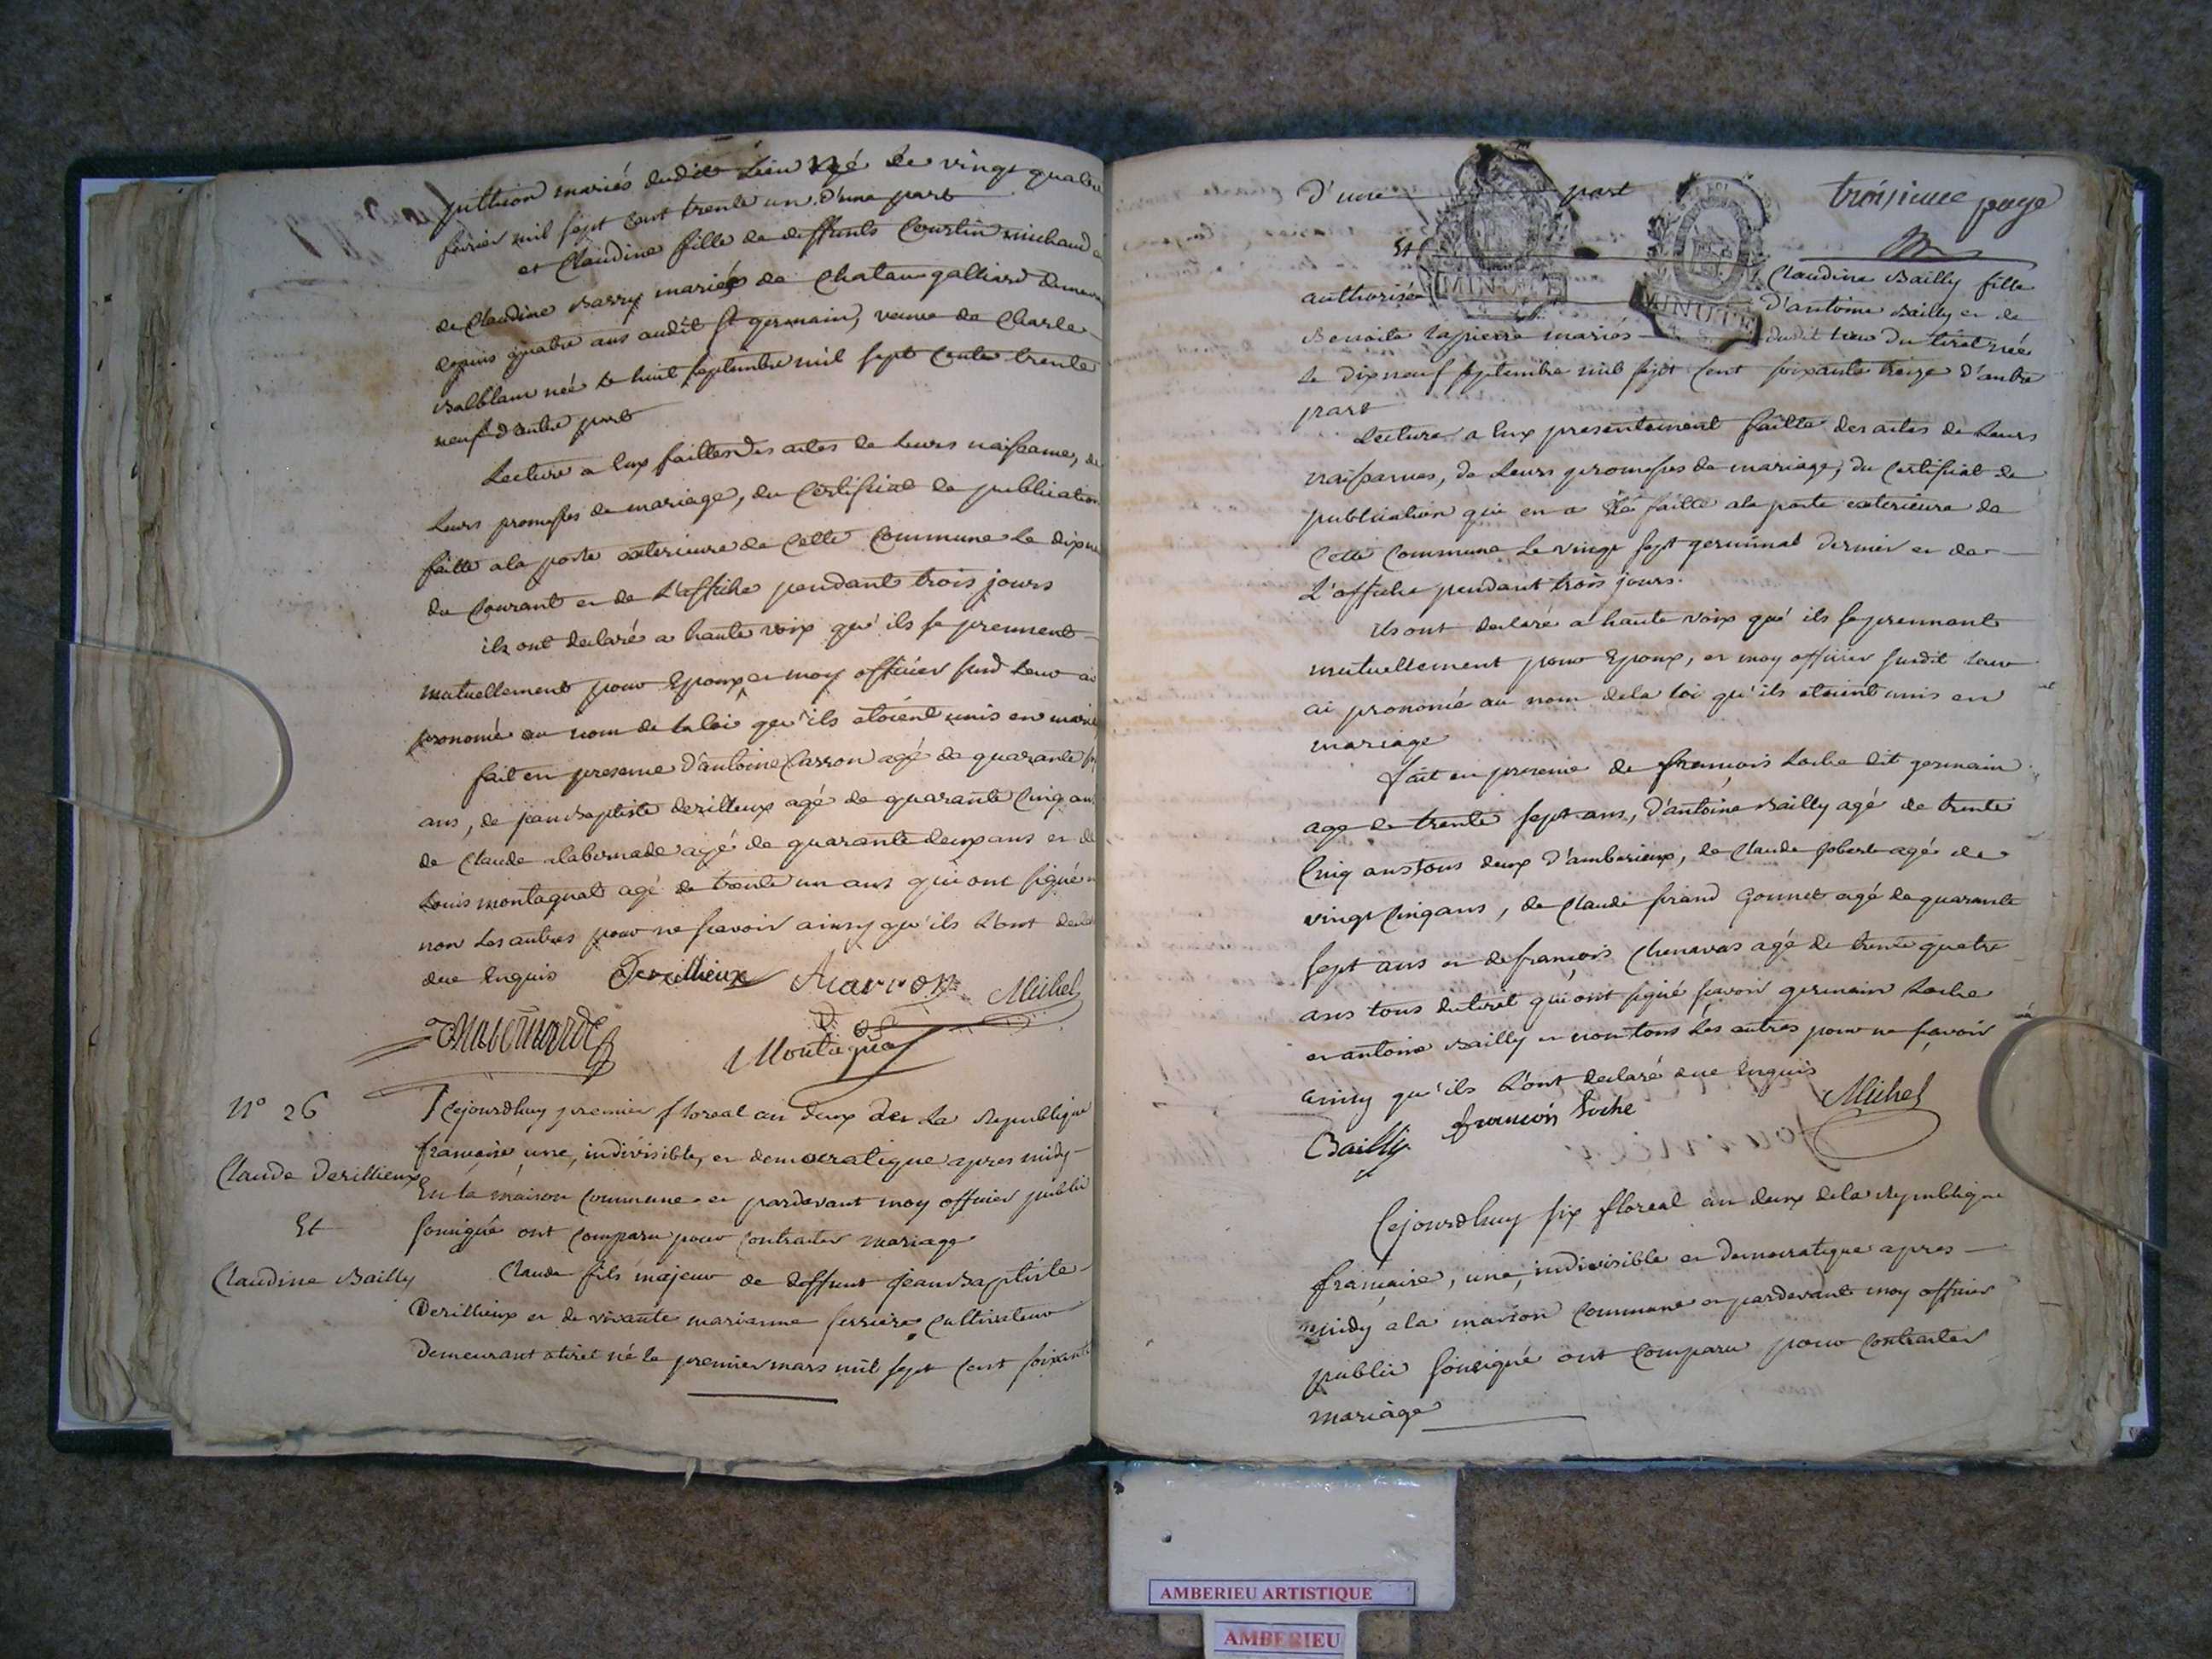 juthion mariés dudit Lieu né le vingt quatre
fevrier mil sept Cent trente un d'une part
et Claudine fille de deffunts Courtin michaud et
de Claudine Barry mariés de Chateau galliard demeu
depuis quatre ans audit St germain, veuve de Charle
Balblanc née le huit septembre mil sept Cents trente
neuf d'autre part
Lecture a Eux faittes des actes de Leurs naissance, de
Leurs promesses de mariage, du Certificat de publication
faitte a la porte exterieure de Cette Commune Le dix ne
du Courant et de L'affiche pendant trois jours
ils ont declaré a haute voix qu'ils se prennent
mutuellement pour Epoux et moy officier susd Leur ai
prononcé au nom de la loi qu'ils etoient unis en mari
fait en presence d'antoine Carron agé de quarante
ans, de jean Baptiste derillieux agé de quarante Cinq ans
de Claude alabernade agé de quarante deux ans et de
Louis montagnat agé de trente un ans qui ont signé
non Les autres pour ne scavoir ainsy qu'ils L'ont decla
due Enquis Derillieux Acarron Michel
Montagnat
N° 26
Claude Derillieux
Et
Claudine Bailly
Cejourdhuy premier floreal an deux de La Republique
francaise une, indivisible, et democratique apres midy
En la maison Commune et pardevant moy officier public
sousigné ont Comparu pour Contracter mariage
Claude fils majeur de deffunt Jean Baptiste
Derillieux et de vivante marianne ferriere Cultivateur
demeurant a tiret né le premier mars mil sept Cent soixante
troisieme page
D'une part
Et Claudine Bailly fille
authorisée d'antoine Bailly et de
Benoite Lapierre mariés dudit Lieu du tiret née
Le dix neuf septembre mil sept Cent soixante treize d'autre
part
Lecture a Eux presentement faitte des actes de Leurs
naissances, de Leurs promesses de mariage, du Certificat de
publication qui en a été faitte a la porte exterieure de
Cette Commune Le vingt sept germinal dernier et de
L'affiche pendant trois jours.
ils ont declaré a haute voix qu'ils se prennent
mutuellement pour Epoux, et moy officier susdit Leur
ai prononcé au nom de la loi qu'ils etoient unis en
mariage
fait en presence de francois Loche dit germain
agé de trente sept ans, d'antoine Bailly agé de trente
Cinq ans tous deux d'amberieux, de Claude Jobert agé de
vingt Cinq ans, de Claude Gonnet agé de quarante
sept ans et de francois Chenavas agé de trente quatre
ans tous du tiret qui ont signé scavoir germain Loche
et antoine Bailly et non tous Les autres pour ne scavoir
ainsy qu'ils L'ont declaré due Enquis
Bailly francois Loche Michel
Cejourdhuy six floreal an deux de la Republique
francaise, une, indivisible et democratique apres
midy a la maison Commune et pardevant moy officier
public sousigné ont Comparu pour Contracter
mariage
MINUTE
MINUTE
AMBERIEU ARTISTIQUE
AMBERIEU